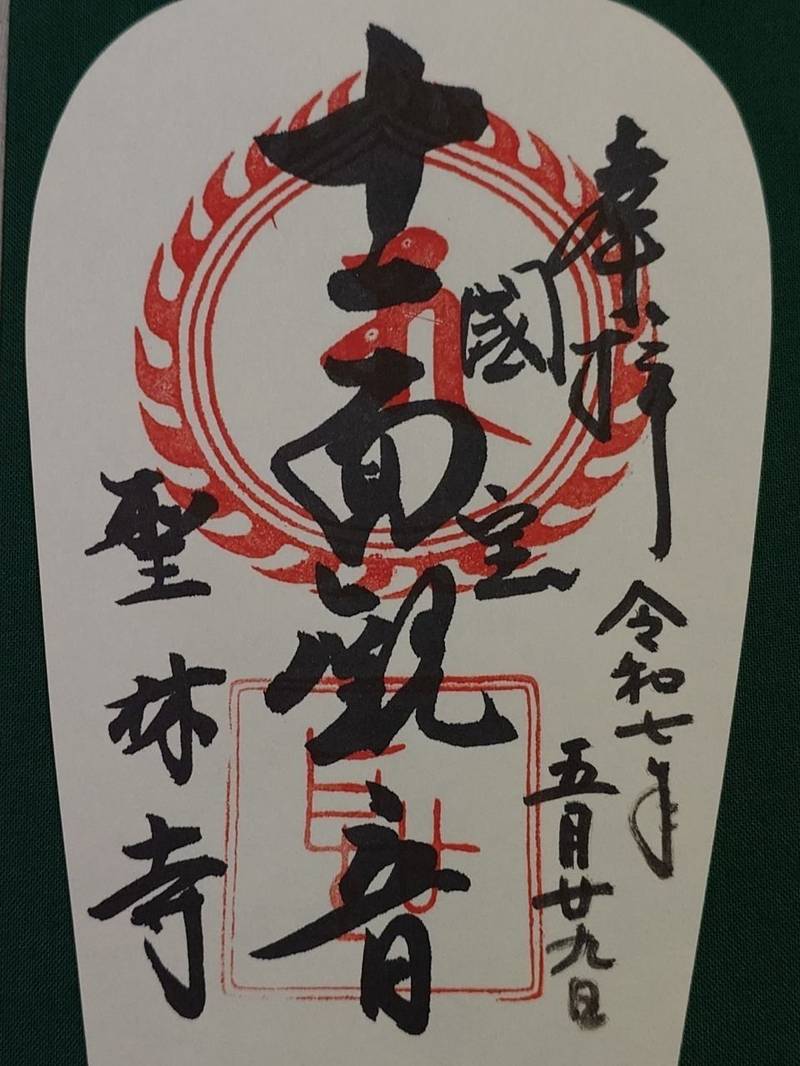 奉拝
令和七年
五月廿九日
國宝
十一面觀音
聖林寺